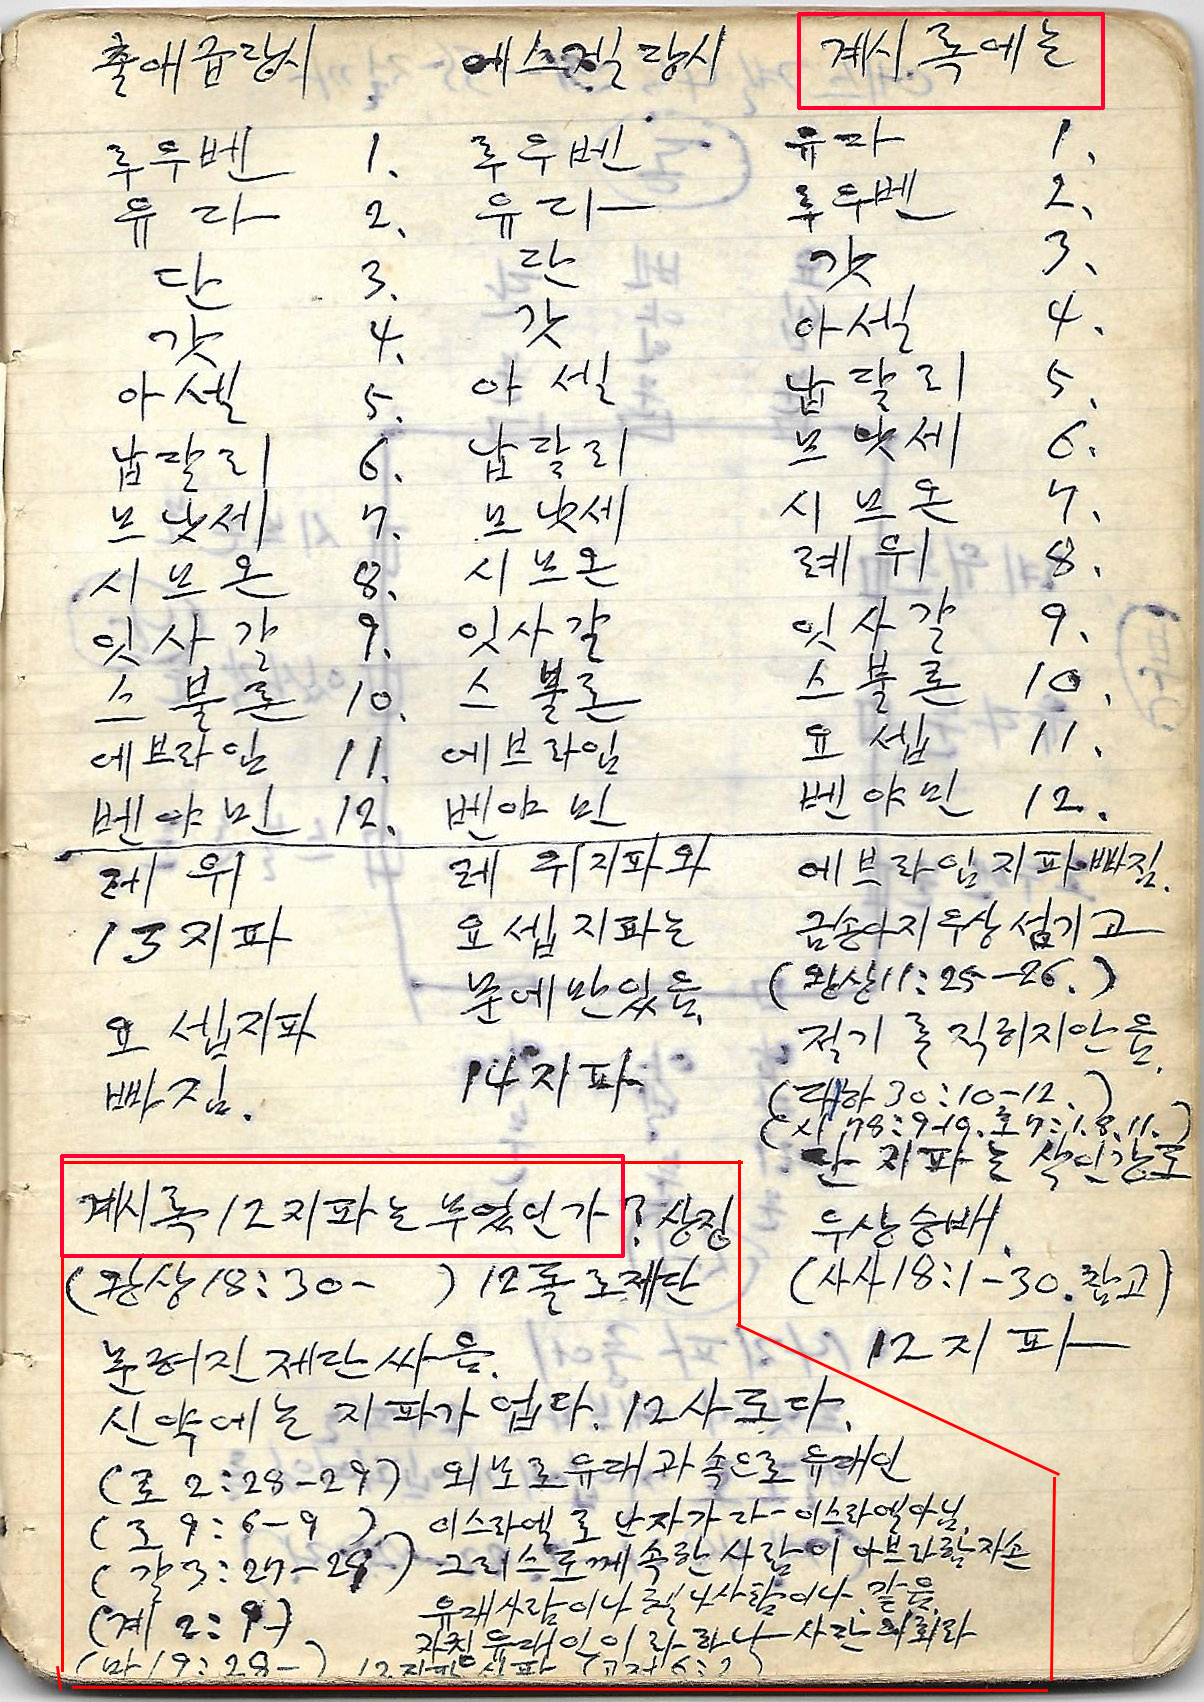 출애급당시 에스겔당시 계시록에는
루우벤 1. 루우벤 유다 1.
유다 2. 유다 루우벤 2.
단 3. 단 갓 3.
갓 4. 갓 아셀 4.
아셀 5. 아셀 납달리 5.
납달리 6. 납달리 므낫세 6.
므낫세 7. 므낫세 시므온 7.
시므온 8. 시므온 레위 8.
잇사갈 9. 잇사갈 잇사갈 9.
스불론 10. 스불론 스불론 10.
에브라임 11. 에브라임 요셉 11.
벤야민 12. 벤야민 벤야민 12.
레위 레위지파와 에브라임지파빠짐.
13지파 요셉지파는 금송아지우상섬기고
문에만있음. (왕상11:25-26.)
요셉지파 절기를직히지안음.
빠짐. 14지파. (대하30:10-12.)
(시78:9-10.
단지파는
계시록12지파는무엇인가? 상징 우상숭배.
(왕상18:30- ) 12돌로제단 (사사18:1-30.참고)
문허진제단싸음. 12지파
신약에는 지파가업다. 12사도다.
(로2:28-29) 외모로유대과속으로유대인
(로9:6-9) 이스라엘로난자가다-이스라엘아님.
(갈3:27-29) 그리스도께속한사람이아브라함자손
유대사람이나헬나사람이나.같음.
(계2:9-) 자칭유대인이라하나-사단의회라
(마19:28-) 12지파